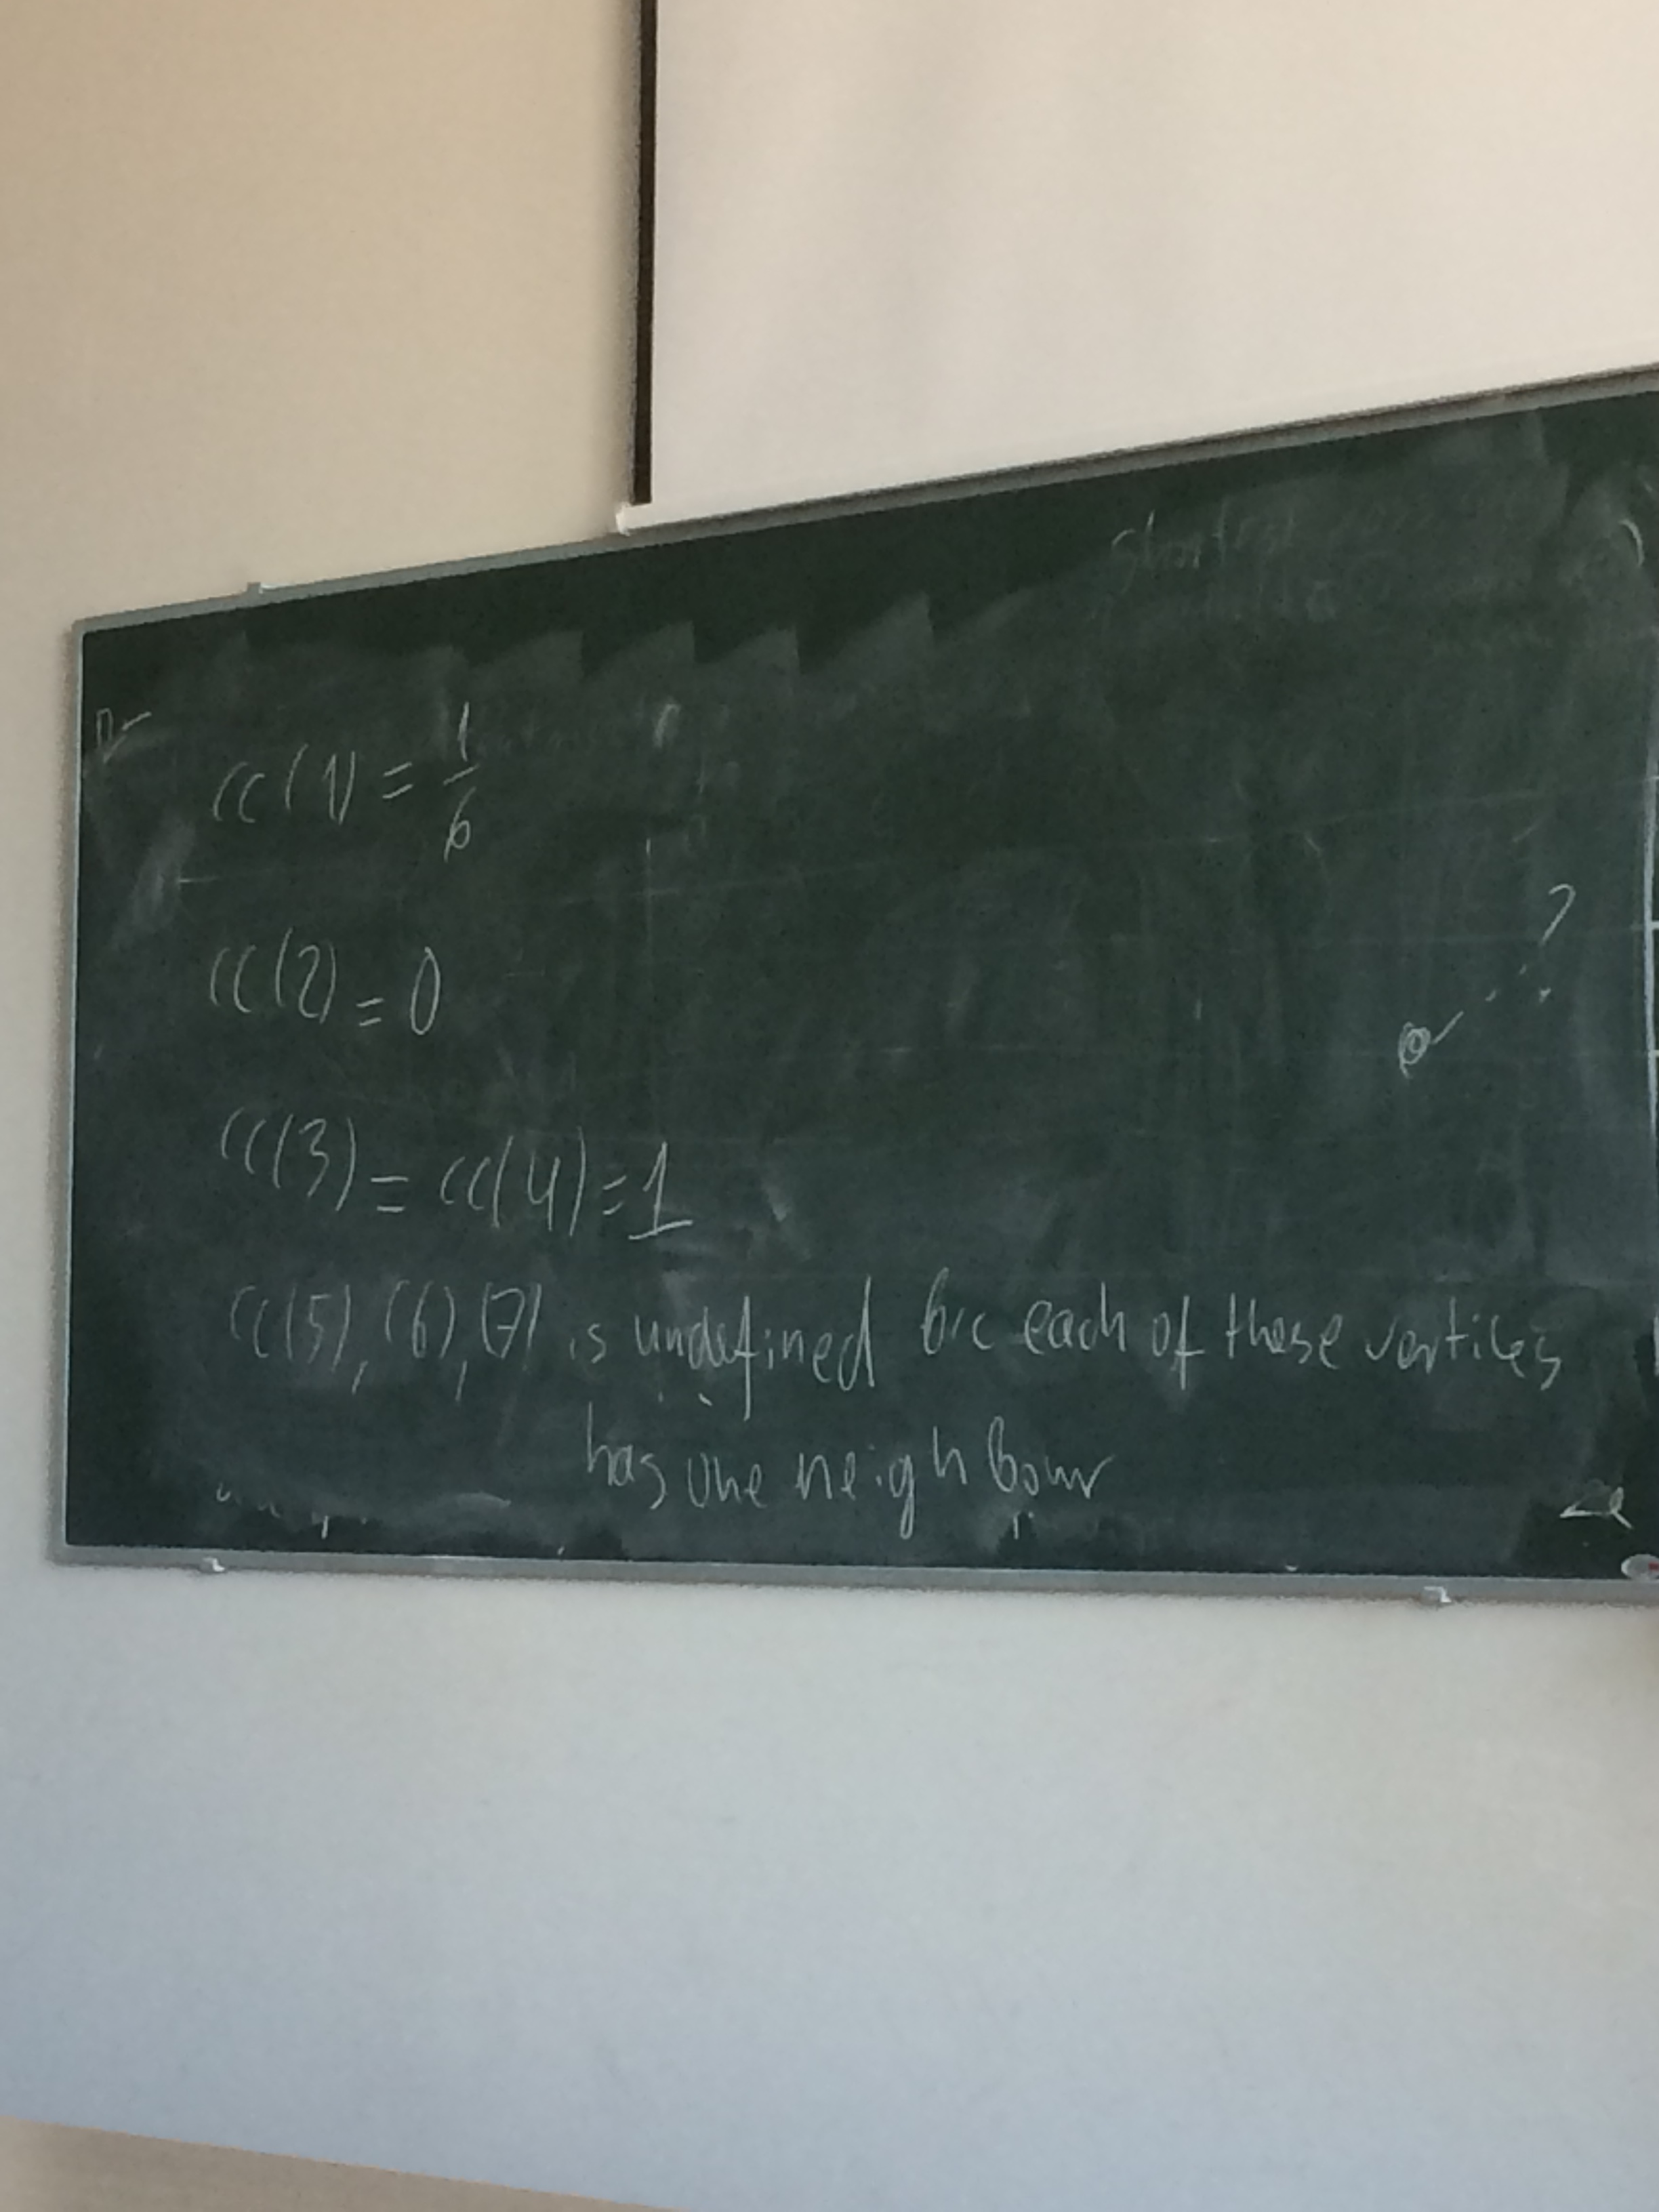 cc(1) = 1/6
cc(2) = 0
cc(3) = cc(4) = 1
cc(5), (6), (7) is undefined b/c each of these vertices
has one neighbour
?